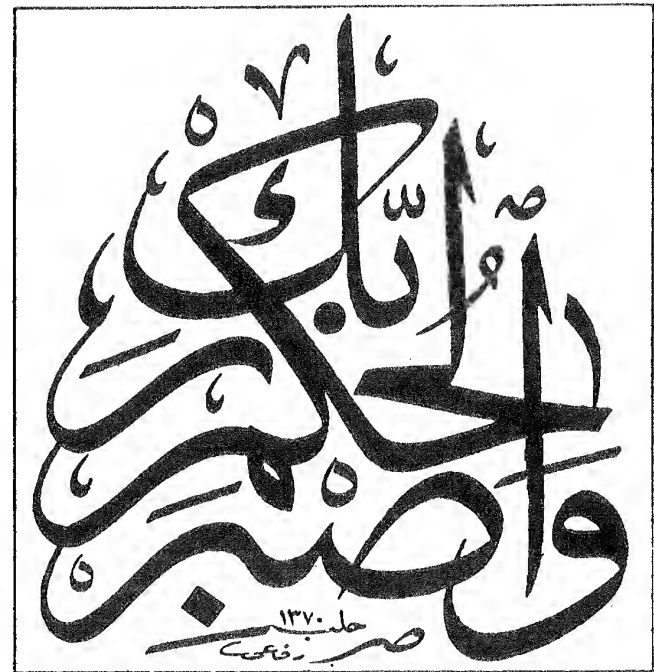 وَاصْبِرْ لِحُكْمِ رَبِّكَ
١٣٧٠